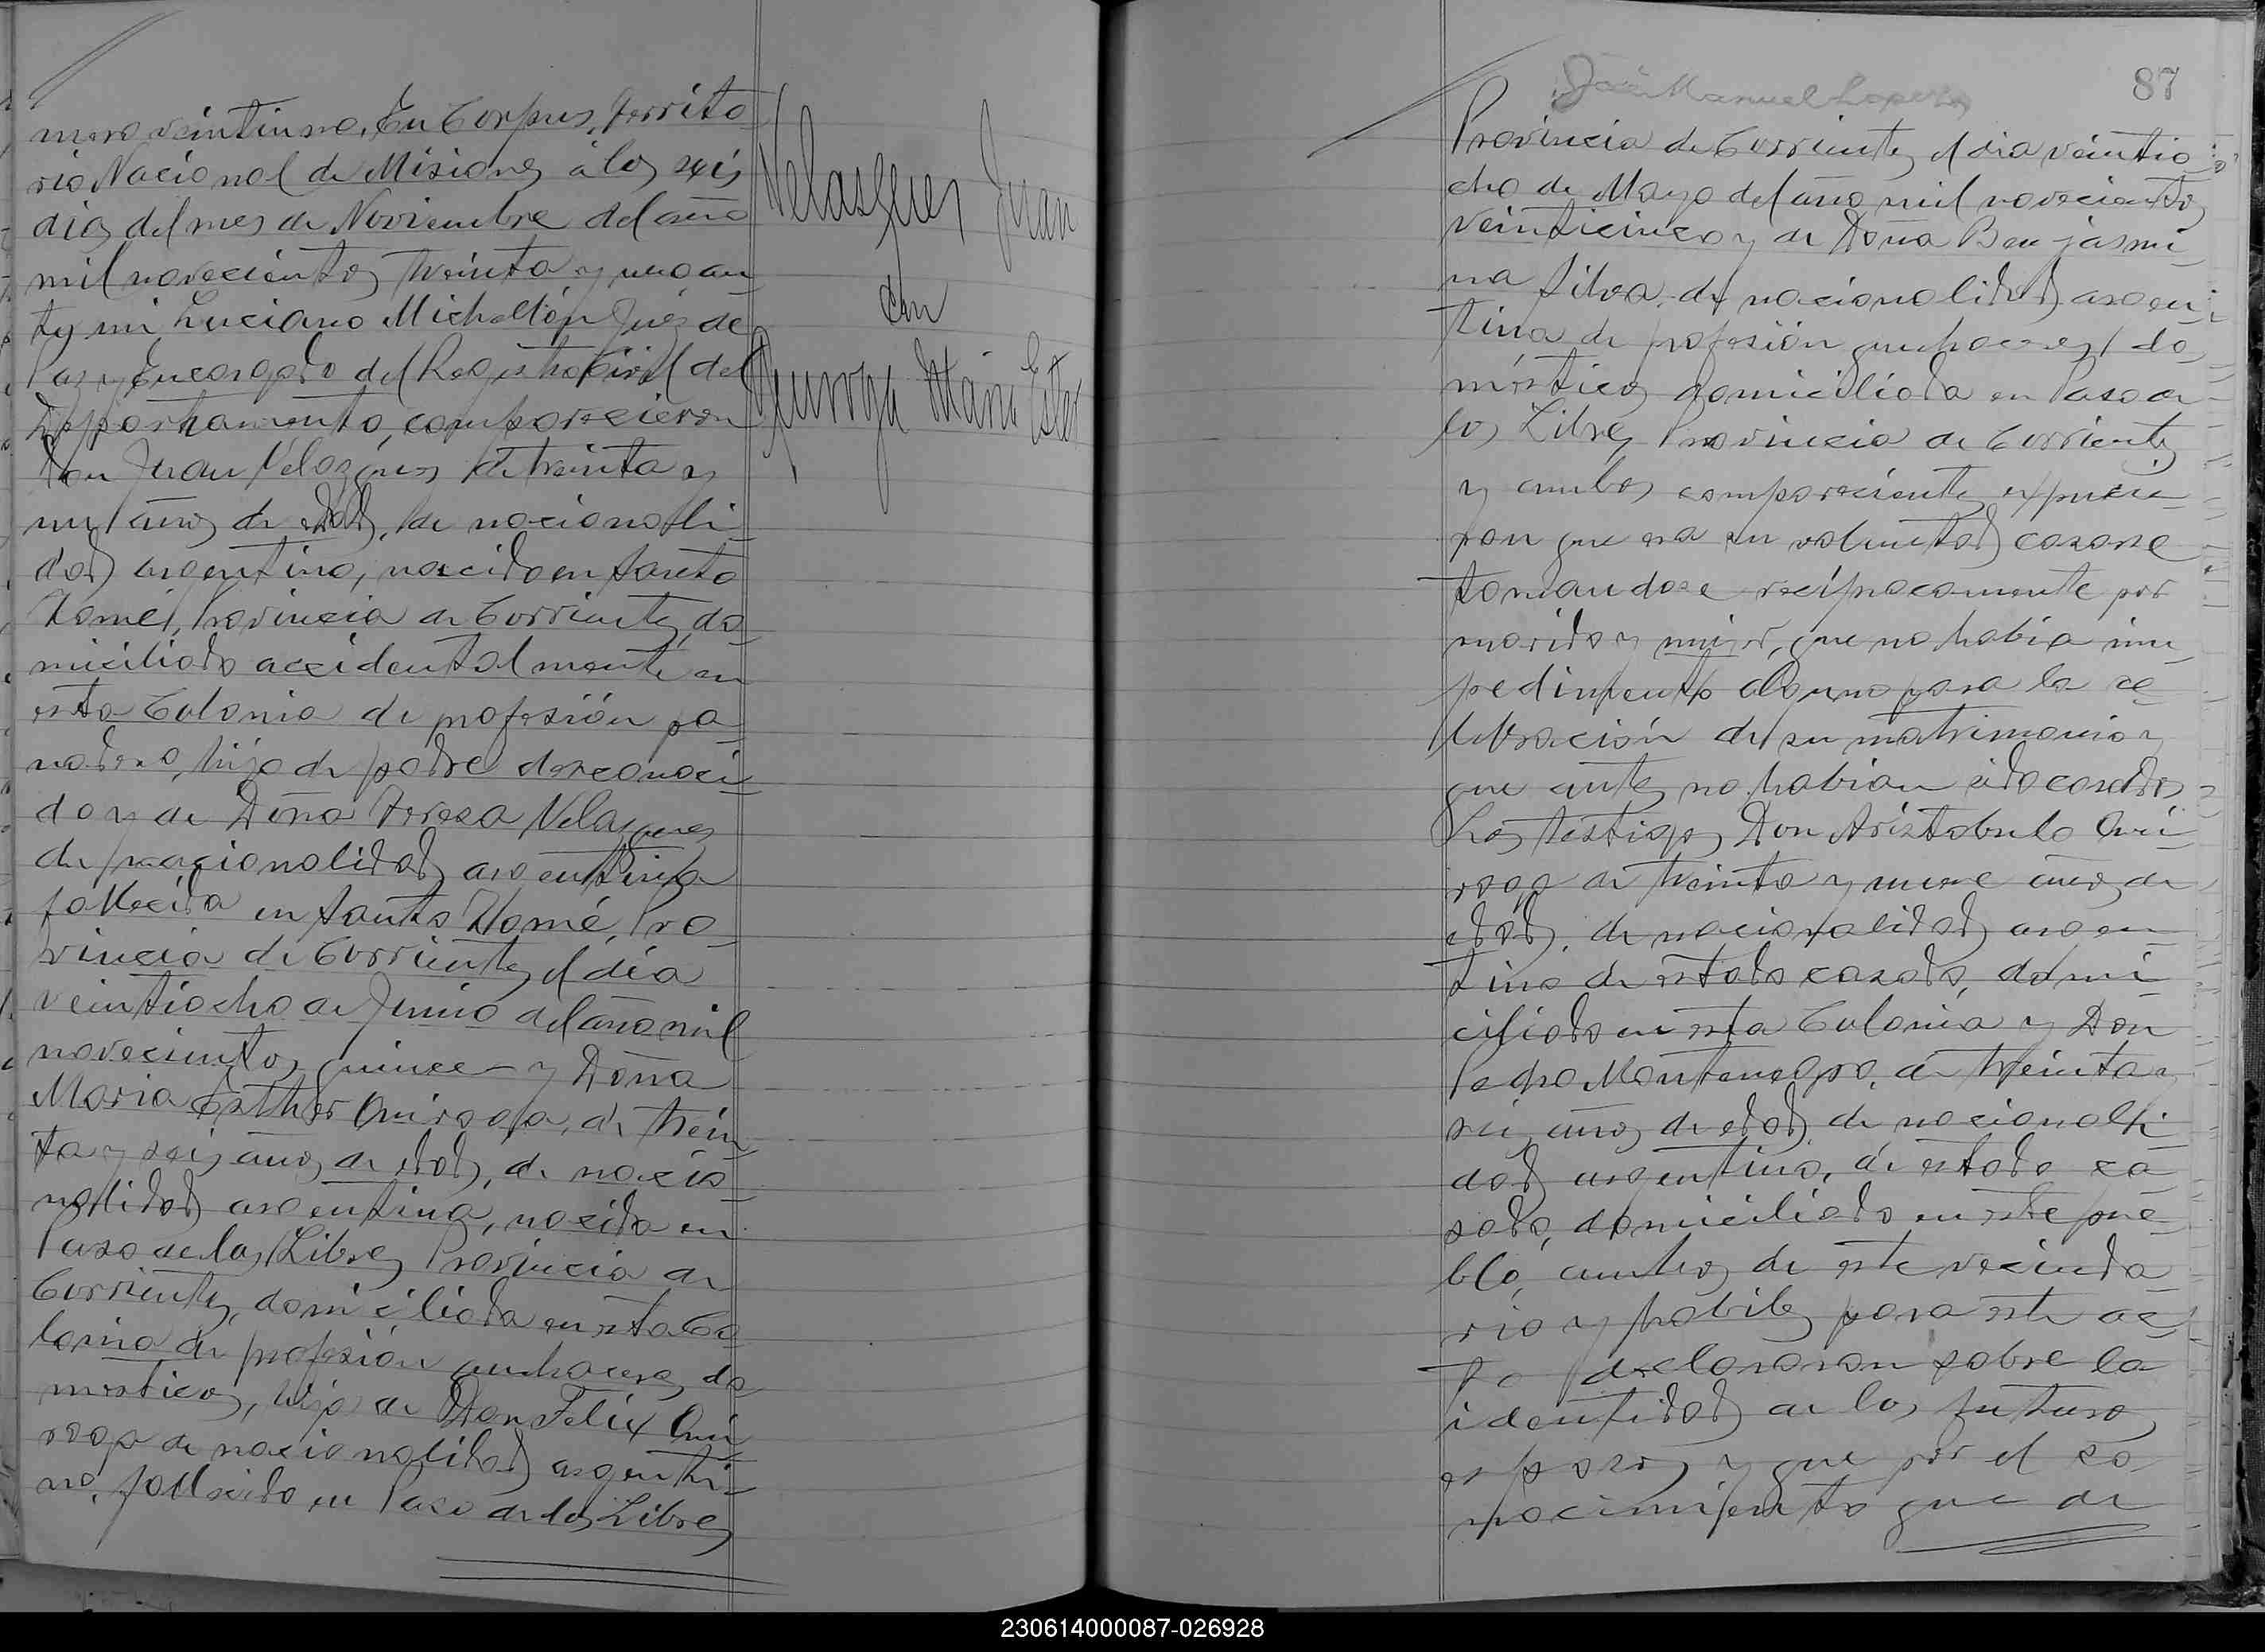 mero veintiuno. En Corpus, Territo-
rio Nacional de Misiones á los seis
dias del mes de Noviembre del año
mil novecientos treinta y uno an-
te mi Luciano Micheltón Juez de
Paz y Encargado del Registro Civil del
Departamento, comparecieron
Don Juan Velazques de treinta y
un años de edad, de nacionali-
dad argentino, nacido en Santo
Tomé, Provincia de Corrientes, do-
miciliado accidentalmente en
esta Colonia de profesión pa-
nadero, hijo de padre desconoci-
do y de Doña Teresa Velasques
de nacionalidad argentina
fallecida en Santo Tomé, Pro-
vincia de Corrientes el día
veintiocho de Junio del año mil
novecientos quince y Doña
Maria Esther Quiroga, de trein-
ta y seis años de edad, de nacio-
nalidad argentina, nacida en
Paso de los Libres Provincia de
Corrientes, domiciliada en esta Co-
lonia de profesión quehaceres do-
mesticos, hija de Don Felix Qui-
roga de nacionalidad argenti-
no, fallecido en Paso de los Libres
Velasques Juan
con
Quiroga Maria Ester
José Manuel Lopez
87
Provincia de Corrientes el dia veintio-
cho de Mayo del año mil novecientos
veinticinco y de Doña Benjasmi-
na Silva, de nacionalidad argen-
tina de profesión quehaceres do-
mésticos domiciliada en Paso de
los Libres, Provincia de Corrientes
y ambos comparecientes expusie-
ron que era su voluntad casarse
tomandose recíprocamente por
marido y mujer, que no había im-
pedimento alguno para la ce-
lebración de su matrimonio y
que antes no habían sido casados
Los testigos Don Aristobulo Qui-
roga de treinta y nueve años de
edad, de nacionalidad argen-
tino de estado casado, domi-
ciliado en esta Colonia y Don
Pedro Montenegro, de treinta y
seis años de edad, de nacionali-
dad argentino, de estado ca-
sado, domiciliado en este pue-
blo, ambos de este vecinda-
rio y habiles para este ac-
to declararon sobre la
identidad de los futuros
esposos y que por el co-
nocimiento que de
230614000087-026928